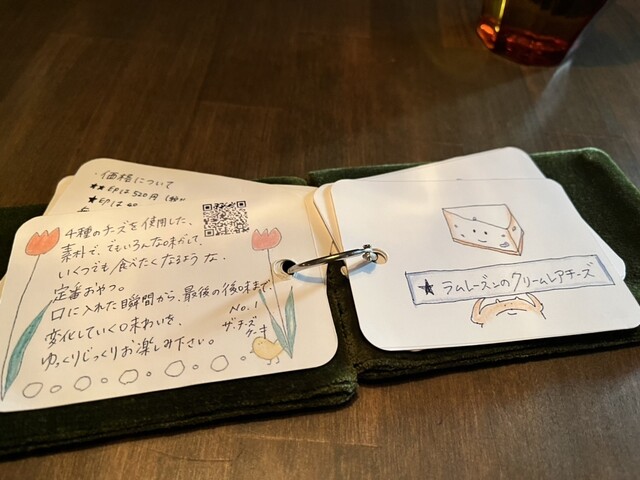 ・価格について
★★印は520円
★印は
4種のチーズを使用した、
素朴で、でもいろんな味がして、
いくつでも食べたくなるような、
定番おやつ。
口に入れた瞬間から、最後の後味まで、
変化していく味わいを、
ゆっくりじっくりお楽しみ下さい。
No.1
ザ・チーズ
ケーキ
★ ラムレーズンのクリームレアチーズ